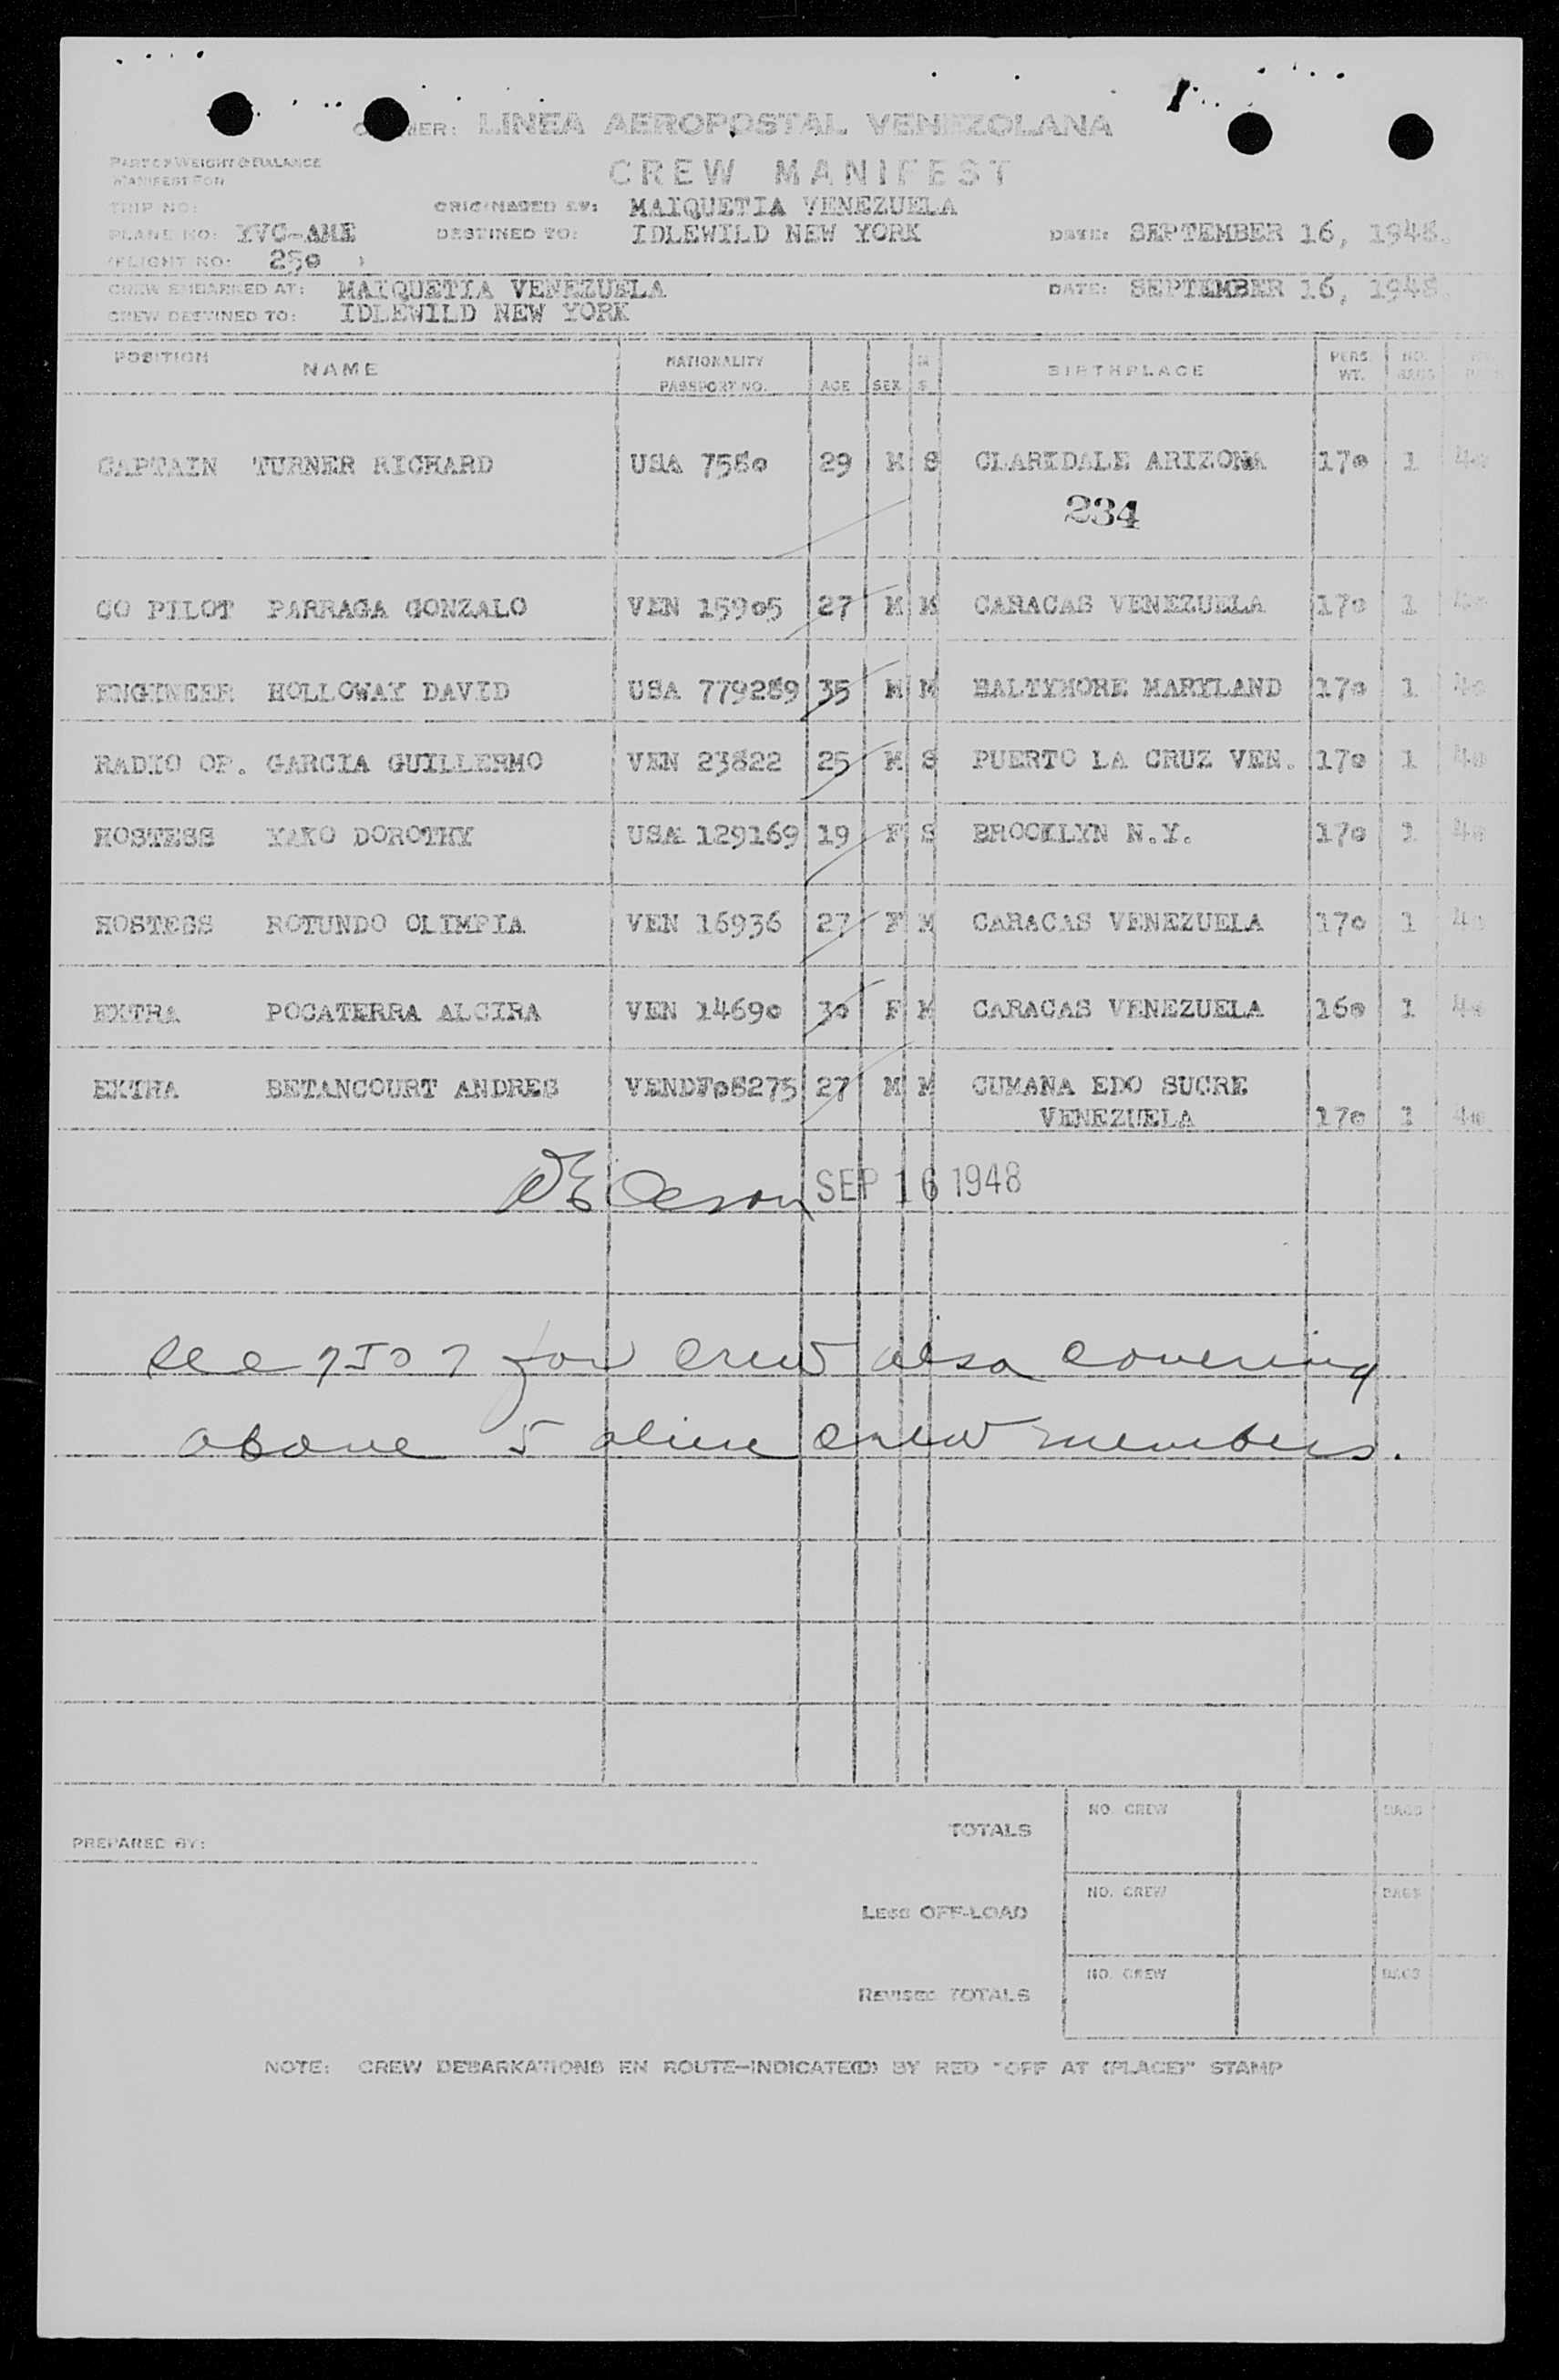 OWNER: LINEA AEROPOSTAL VENEZOLANA
PART OF WEIGHT & BALANCE
MANIFEST FOR
CREW MANIFEST
TRIP NO:
ORIGINATED AT: MAIQUETIA VENEZUELA
PLANE NO: YVC-AME DESTINED TO: IDLEWILD NEW YORK DATE: SEPTEMBER 16, 1948.
(FLIGHT NO: 250 )
CREW EMBARKED AT: MAIQUETIA VENEZUELA DATE: SEPTEMBER 16, 1948.
CREW DESTINED TO: IDLEWILD NEW YORK
POSITION NAME NATIONALITY PASSPORT NO. AGE SEX M S BIRTHPLACE PERS. WT. NO. BAGS
CAPTAIN TURNER RICHARD USA 7580 29 M S CLARKDALE ARIZONA 170 1 40
234
CO PILOT PARRAGA GONZALO VEN 15905 27 M M CARACAS VENEZUELA 170 1 40
ENGINEER HOLLOWAY DAVID USA 779289 35 M M BALTYMORE MARYLAND 170 1 40
RADIO OP. GARCIA GUILLERMO VEN 23822 25 M S PUERTO LA CRUZ VEN. 170 1 40
HOSTESS YAKO DOROTHY USA 129169 19 F S BROOKLYN N.Y. 170 1 40
HOSTESS ROTUNDO OLIMPIA VEN 16936 27 F M CARACAS VENEZUELA 170 1 40
EXTRA POCATERRA ALCIRA VEN 14690 30 F M CARACAS VENEZUELA 160 1 40
EXTRA BETANCOURT ANDRES VENDF08275 27 M M CUMANA EDO SUCRE
VENEZUELA 170 1 40
SEP 16 1948
see for crew visa covering
above 5 alien crew members.
NO. CREW BAGS
TOTALS
PREPARED BY:
NO. CREW BAGS
LESS OFF-LOAD
NO. CREW BAGS
REVISED TOTALS
NOTE: CREW DEBARKATIONS EN ROUTE-INDICATE(D) BY RED "OFF AT (PLACE)" STAMP